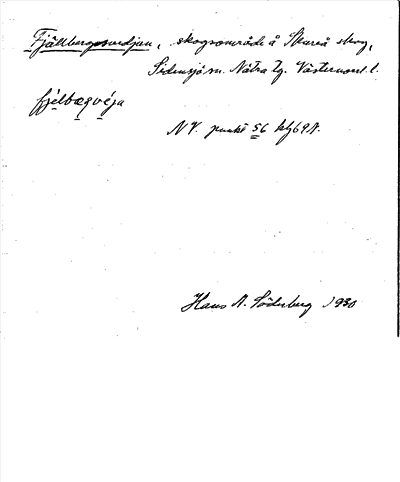 Fjällbergsvedjan, skogsområde å Skarså skog,
Sidensjö sn. Nätra tg. Västernorrl. l.
fjélbærgvéja
NV. punkt 56 blj 69 N.
Hans A. Söderberg 1930